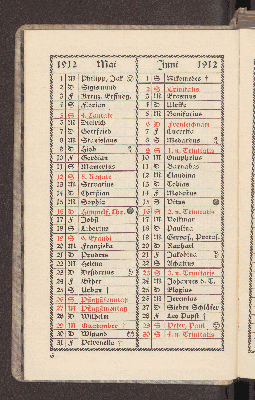 1912 Mai
1 M Philipp, Jak.
2 D Sigismund
3 F Kreuz. Erfindg.
4 S Florian
5 S 4. Cantate
6 M Dietrich
7 D Gottfried
8 M Stanislaus
9 D Hiob
10 F Gordian
11 S Mamertus
12 S 5. Rogate
13 M Servatius
14 D Christian
15 M Sophia
16 D Himmelf. Chr.
17 F Jobst
18 S Liberius
19 S 6. Exaudi
20 M Franziska
21 D Prudens
22 M Helena
23 D Desiderius
24 F Esther
25 S Urban †
26 S Pfingstsonntag
27 M Pfingstmontag
28 D Wilhelm
29 M Quatember †
30 D Wigand
31 F Petronella †
6
Juni 1912
1 S Nikomedes †
2 S Trinitatis
3 M Erasmus
4 D Ulrike
5 M Bonifacius
6 D Fronleichnam
7 F Lucretia
8 S Medardus
9 S 1. n. Trinitatis
10 M Onuphrius
11 D Barnabas
12 M Claudina
13 D Tobias
14 F Modestus
15 S Vitus
16 S 2. n. Trinitatis
17 M Volkmar
18 D Paulina
19 M Gervas., Protas.
20 D Raphael
21 F Jakobina
22 S Achatius
23 S 3. n. Trinitatis
24 M Johannes d. T.
25 D Elogius
26 M Jeremias
27 D Sieben Schläfer
28 F Leo Papst †
29 S Peter, Paul
30 S 4. n. Trinitatis